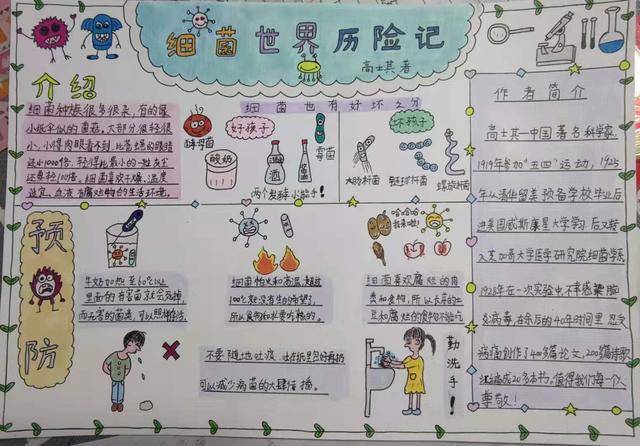 细菌世界历险记
高士其 著
介绍
细菌种族很多很杂,有的像
小纸伞似的蘑菇,大部分很轻很
小,小得肉眼看不到,比苍蝇的眼睛
还小1000倍,轻得比最小的一粒灰尘
还要轻100倍。细菌喜欢不燥,温度
适宜,血液,有腐烂物的生活环境。
细菌也有好坏之分
好孩子
酵母菌
酸奶
酒
霉菌
两个发酵小能手!
坏孩子
大肠杆菌
链球杆菌
螺旋杆菌
预
防
牛奶加热至60℃以上
里面的有害菌就会死掉,
而无害的菌类,可以照样存活。
细菌怕火和高温,超过
100℃就没有生的希望了,
所以食物和水要吃熟的。
哈哈哈
我来啦!
细菌喜欢腐烂的肉
类和食物,所以发霉的土
豆和腐烂的食物不能吃
不要随地吐痰,吐在纸里包好再扔
可以减少病菌的大肆传播。
勤洗手!
作者简介
高士其—中国著名科学家,
1919年参加"五四"运动,1925
年从清华留美预备学校毕业后
进美国威斯康星大学学习 后又转
入芝加哥大学医学研究院细菌学系
1928年在一次实验中,不幸感染脑
炎病毒,在余后的40年时间里 忍受
病痛创作了400多篇论文,200多篇诗歌
汇编成20多本书。值得我们每一个人
尊敬!